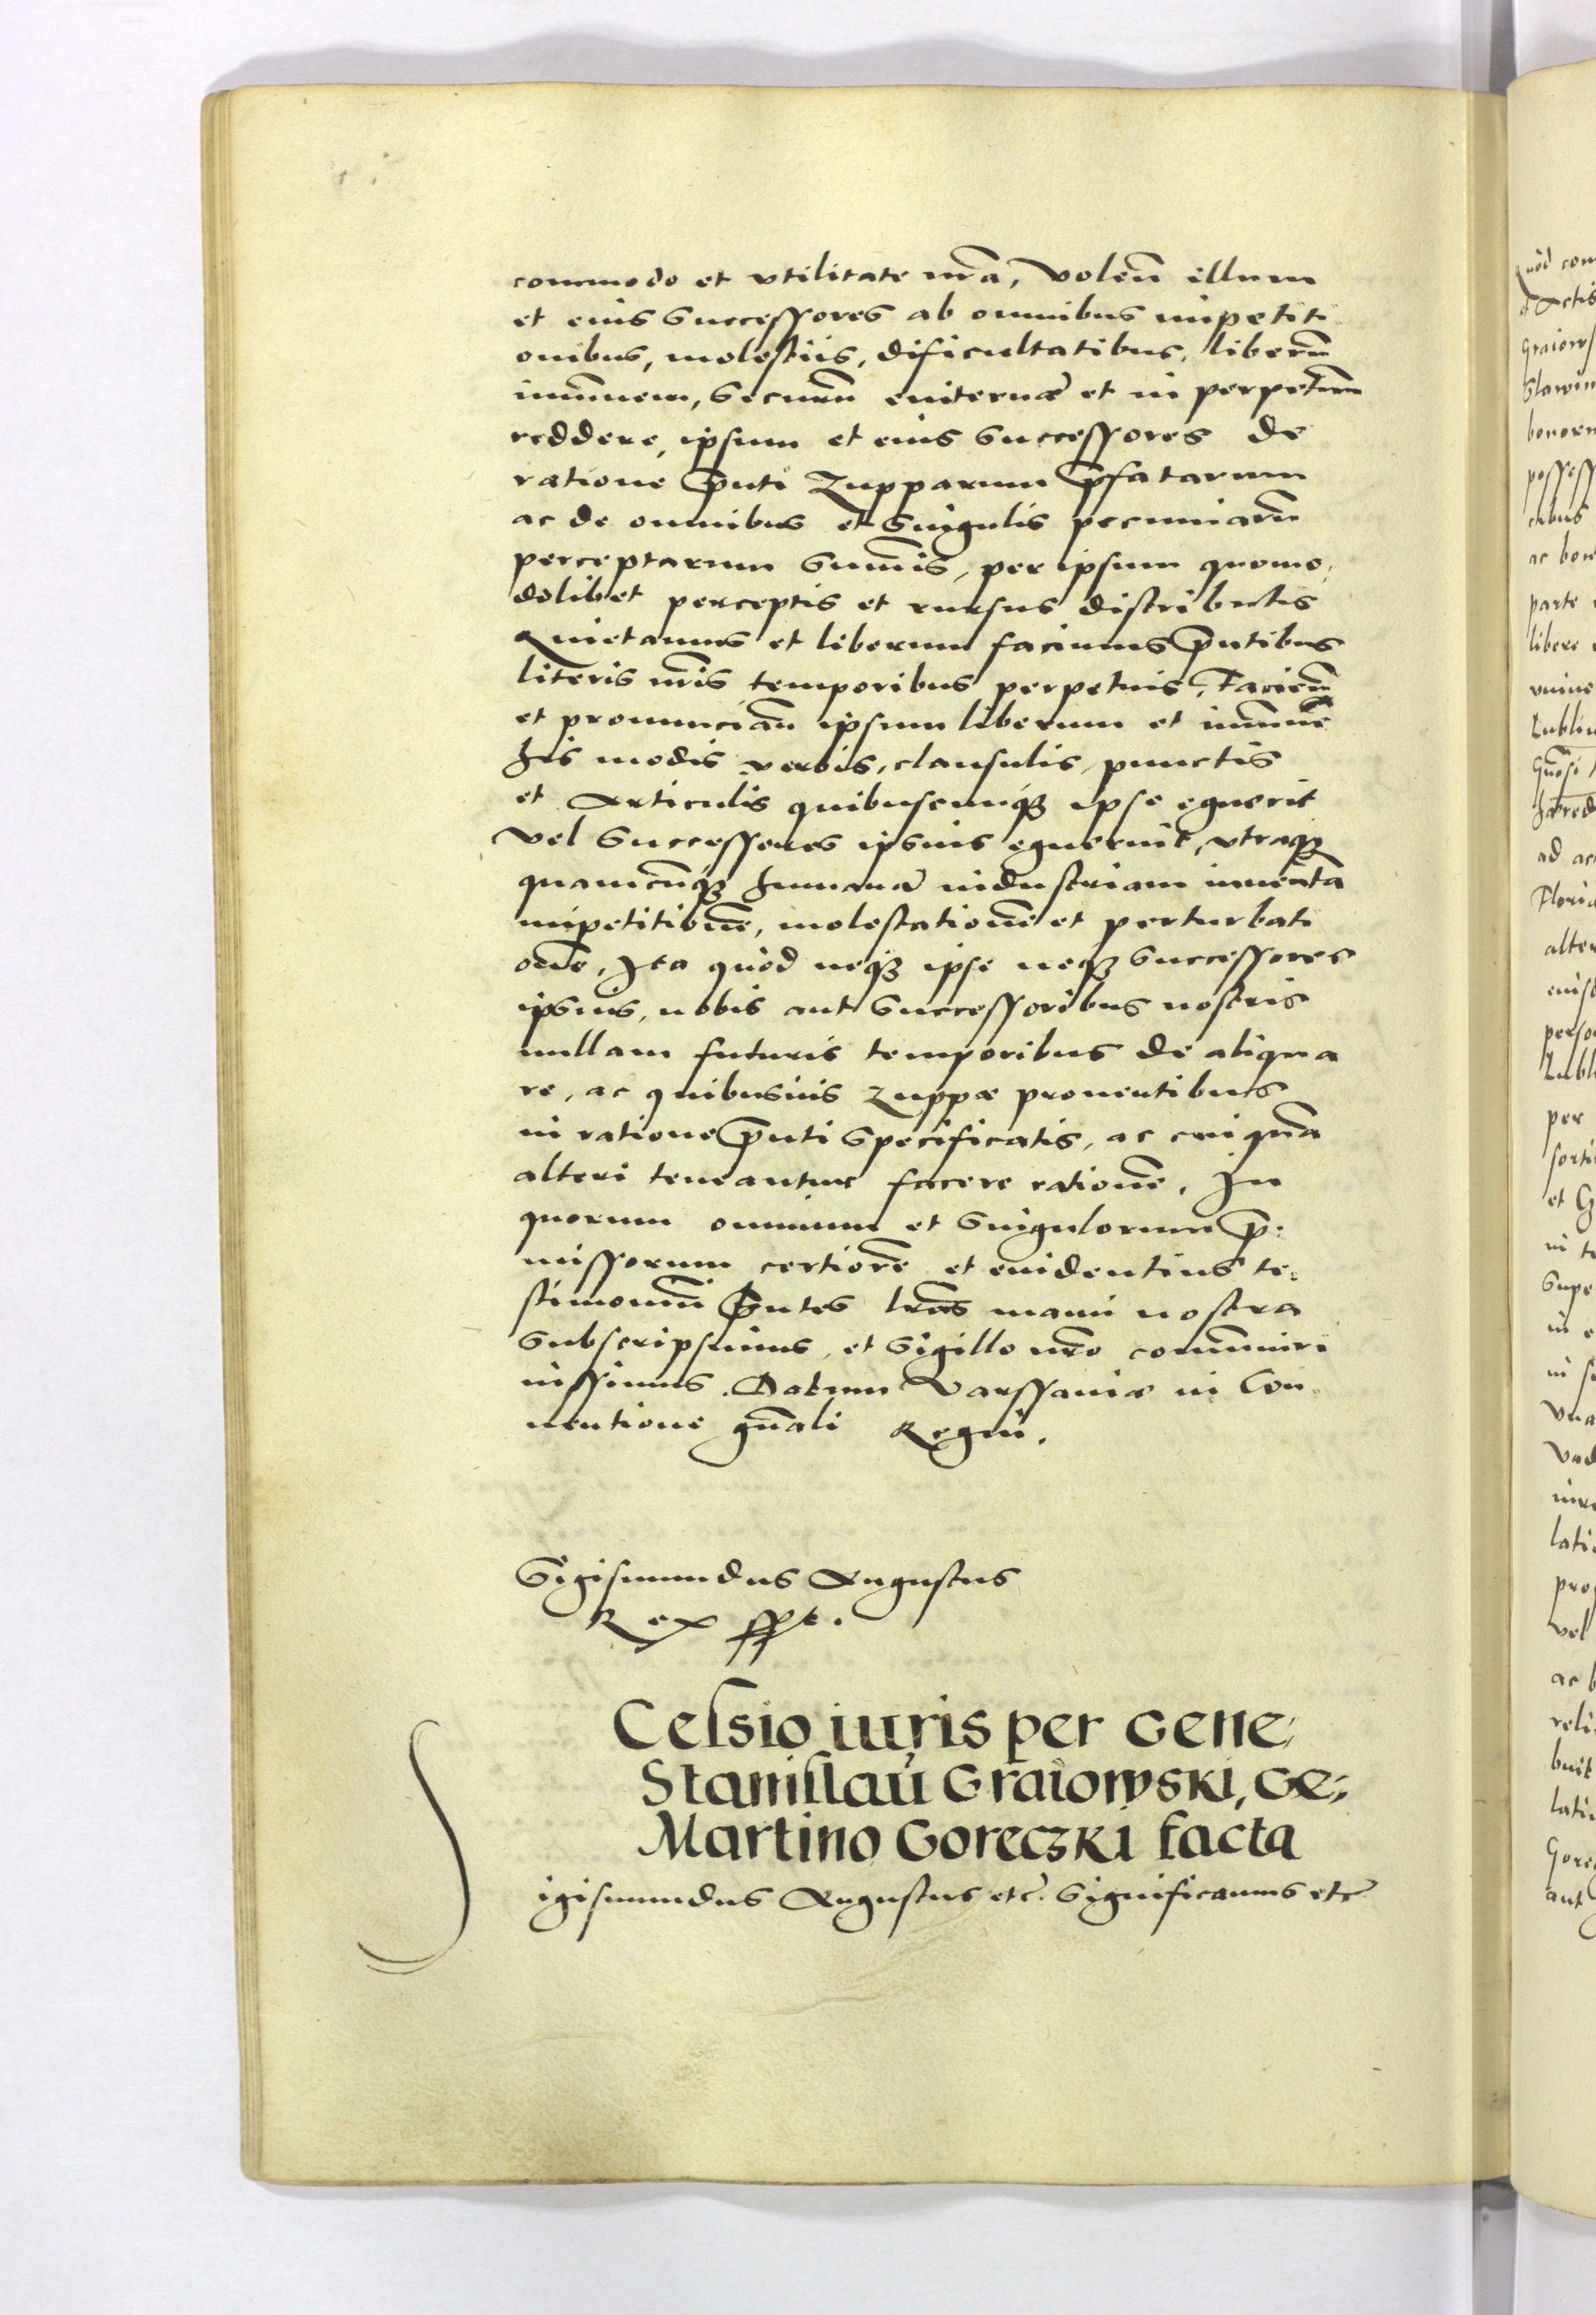 commodo et vtilitate nrã, Voleñ illum
et eius Successores ab omnibus impetiti
onibus, molestiis, dificultatibus, liberũ
imũnem, Securũ euiternæ et in perpetuũm
reddere, ipsum et eius Successores de
ratione p̃nti Zupparum p̃fatarum
ac de omnibus et Singulis pecuniarũ
perceptarum Sum̃is, per ipsum quomo,
dolibet perceptis et rursus distributis
Quietamus et liberum facimus p̃ntibus
literis nr̃is temporibus perpetuis, Facieñ
et pronunciañ ipsum liberum et imũnẽ
his modis verbis, clausulis, punctis
et Articulis quibuscunq; ipse eguerit
Vel Successores ipsius eguerint, vtraq;
quamcũq; humanã industriam inuentã
impetitionẽ, molestationẽ et perturbati
onẽ, Ita quod neq; ipse neq; Successores
ipsius, nobis aut Successoribus nostris
nullam futuris temporibus de aliqua
re, ac quibusuis Zuppæ prouentibus
in ratione p̃nti Specificatis, ac cuiquã
alteri teneantur facere rationẽ, In
quorum omnium et Singulorum p̃:
missorum certiorẽ et euidentius te:
stimoniũ p̃ntes lr̃as manu nostra
Subscripsimus, et Sigillo nr̃o com̃uniri
iussimus. Datum Varssauiæ in Con
uentione gñali Regni.
Sigismundus Augustus
Rex sspt.
Cessio iuris per Gene:
Stanislaũ Graiowski, Ge:
Martino Goreczki facta
Sigismundus Augustus etc̃. Significamus etc̃
quod com
Actis
Graiows
Slawin
bonoru
possess
ac bon
parte
libere
Lublin
quasi
hæred
ad ac
Floria
alter
eius
perso
Lubl
per
sorti
et G
in t
Supe
in
in s
Vna
Vad
lati
prop
vel
ac b
reli
buit
lati
Gore
aut